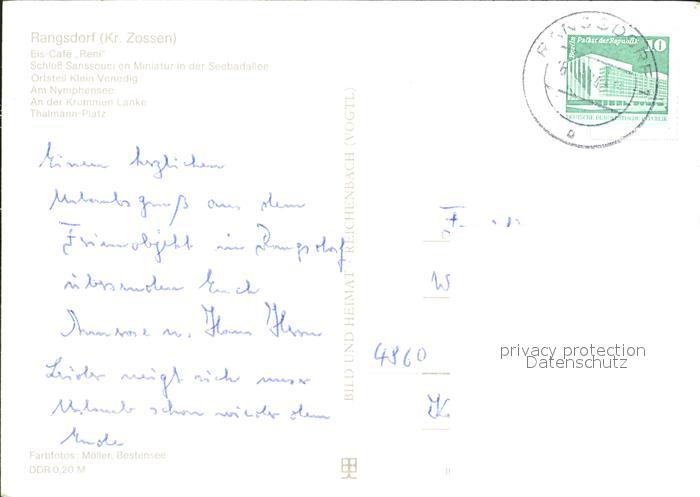 Rangsdorf (Kr. Zossen)
Eis-Café „Reni"
Schloß Sanssouci en Miniatur in der Seebadallee
Ortsteil Klein Venedig
Am Nymphensee
An der Krummen Lanke
Thälmann-Platz
Berlin Palast der Republik 10
DEUTSCHE DEMOKRATISCHE REPUBLIK
RANGSDORF 1
Einen herzlichen
Urlaubsgruß aus dem
Ferienobjekt in Rangsdorf
übersenden Euch
Annerose u. Hans
Leider neigt sich unser
Urlaub schon wieder dem
Ende
BILD UND HEIMAT · REICHENBACH (VOGTL)
F
W
4860
privacy protection
Datenschutz
Farbfotos: Möller, Bestensee
DDR 0,20 M